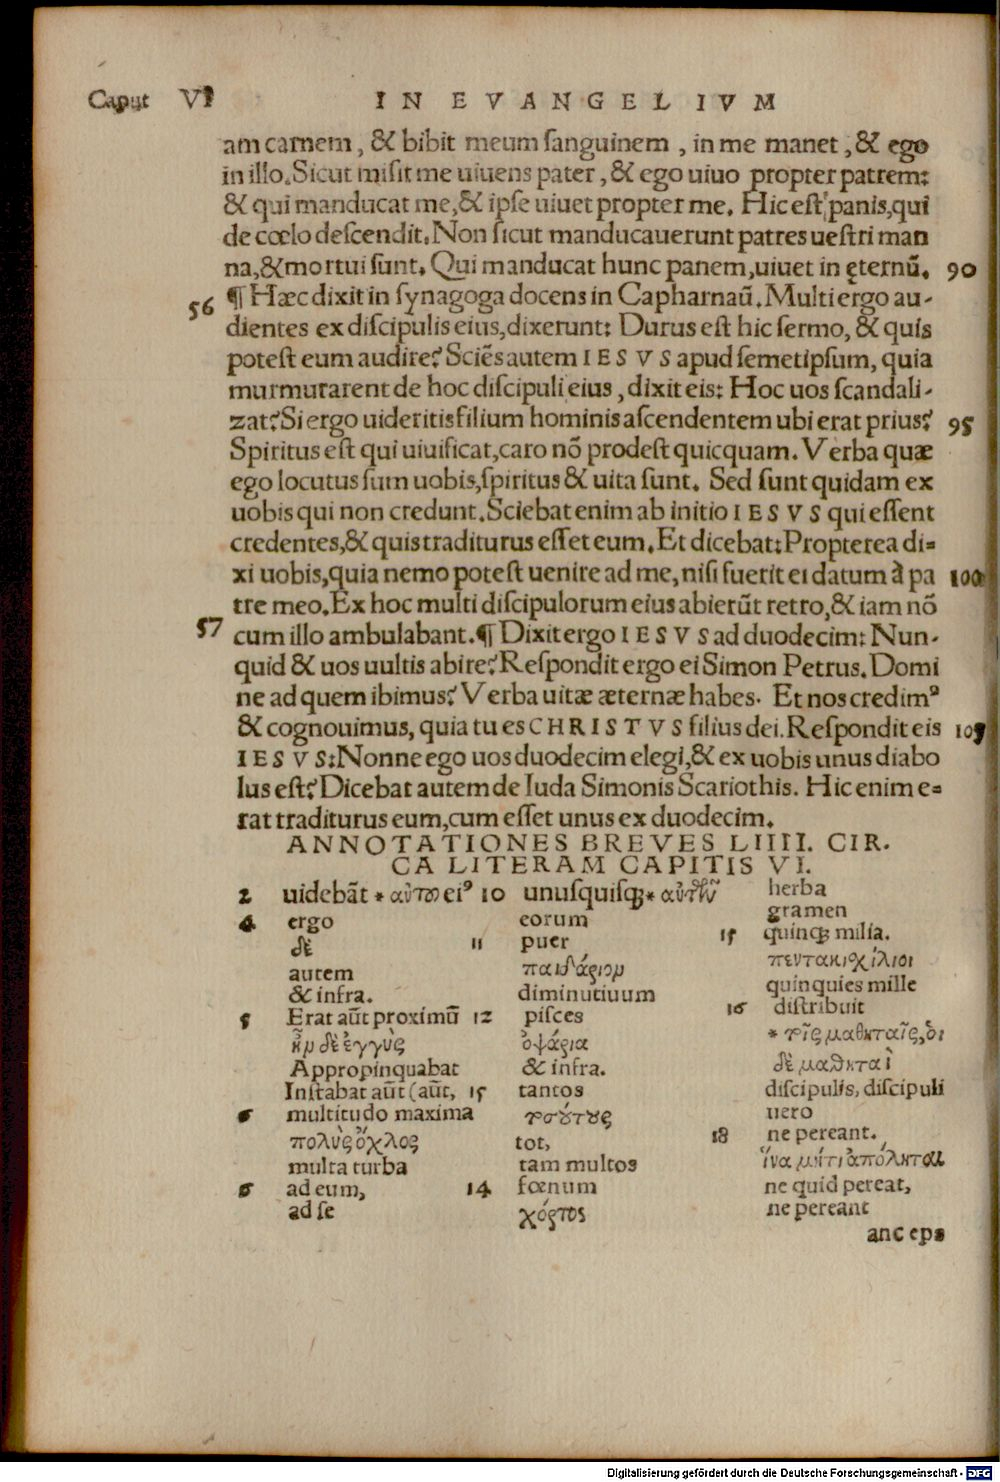 Caput VI
IN EVANGELIVM
am carnem, & bibit meum sanguinem, in me manet, & ego
in illo. Sicut misit me uiuens pater, & ego uiuo propter patrem:
& qui manducat me, & ipse uiuet propter me. Hic est panis, qui
de cœlo descendit. Non sicut manducauerunt patres uestri man
na, & mortui sunt. Qui manducat hunc panem, uiuet in ęternū. 90
56 ¶ Hæc dixit in synagoga docens in Capharnaū. Multi ergo au-
dientes ex discipulis eius, dixerunt: Durus est hic sermo, & quis
potest eum audire? Sciēs autem IESVS apud semetipsum, quia
murmurarent de hoc discipuli eius, dixit eis: Hoc uos scandali-
zat? Si ergo uideritis filium hominis ascendentem ubi erat prius? 95
Spiritus est qui uiuificat, caro nō prodest quicquam. Verba quæ
ego locutus sum uobis, spiritus & uita sunt. Sed sunt quidam ex
uobis qui non credunt. Sciebat enim ab initio IESVS qui essent
credentes, & quis traditurus esset eum. Et dicebat: Propterea di=
xi uobis, quia nemo potest uenire ad me, nisi fuerit ei datum à pa 100
tre meo. Ex hoc multi discipulorum eius abierūt retro, & iam nō
57 cum illo ambulabant. ¶ Dixit ergo IESVS ad duodecim: Nun-
quid & uos uultis abire? Respondit ergo ei Simon Petrus. Domi
ne ad quem ibimus? Verba uitæ æternæ habes. Et nos credimꝰ
& cognouimus, quia tu es CHRISTVS filius dei. Respondit eis 105
IESVS: Nonne ego uos duodecim elegi, & ex uobis unus diabo
lus est? Dicebat autem de Iuda Simonis Scariothis. Hic enim e=
rat traditurus eum, cum esset unus ex duodecim.
ANNOTATIONES BREVES LIIII. CIR.
CA LITERAM CAPITIS VI.
2 uidebāt * αὐτοῦ eiꝰ
4 ergo
δὲ
autem
& infra.
5 Erat aūt proximū
ἦν δὲ ἐγγὺς
Appropinquabat
Instabat aūt (aūt,
6 multitudo maxima
πολὺς ὄχλος
multa turba
6 ad eum,
ad se
10 unusquisqꝫ * αὐτῶν
eorum
11 puer
παιδάριον
diminutiuum
12 pisces
ὀψάρια
& infra.
15 tantos
τοσούτους
tot,
tam multos
14 fœnum
χόρτος
herba
gramen
15 quinqꝫ milia.
πεντακιχίλιοι
quinquies mille
16 distribuit
* τοῖς μαθηταῖς, οἱ
δὲ μαθηταὶ
discipulis, discipuli
uero
18 ne pereant.
ἵνα μήτι ἀπόληται
ne quid pereat,
ne pereant
anc eps
Digitalisierung gefördert durch die Deutsche Forschungsgemeinschaft - DFG